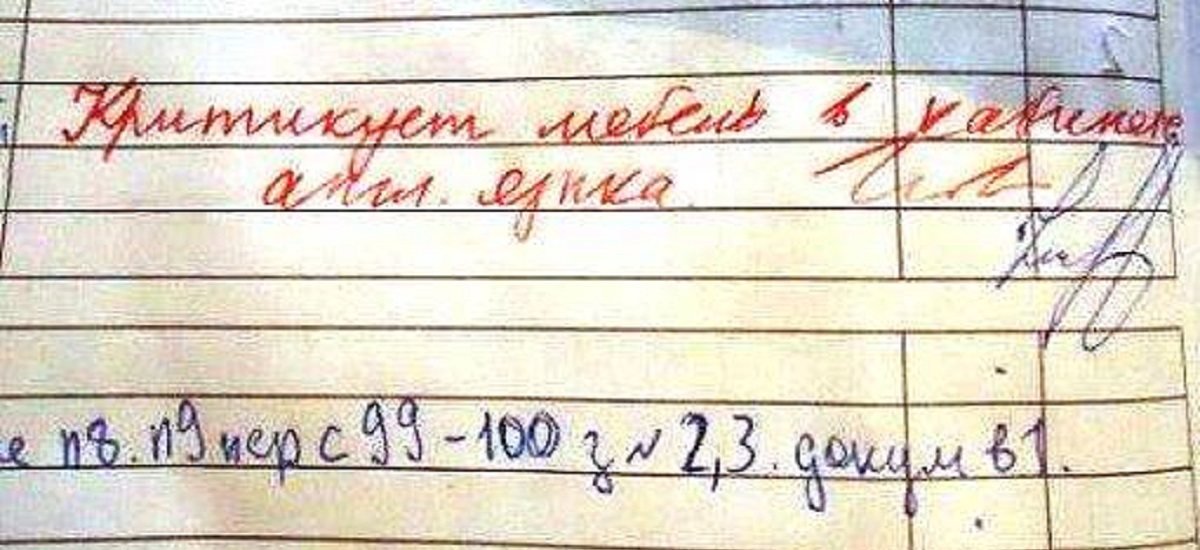 Критикует мебель в кабинете
англ. языка.
е п8. п9 пер с 99-100 з № 2,3. докум в 1.